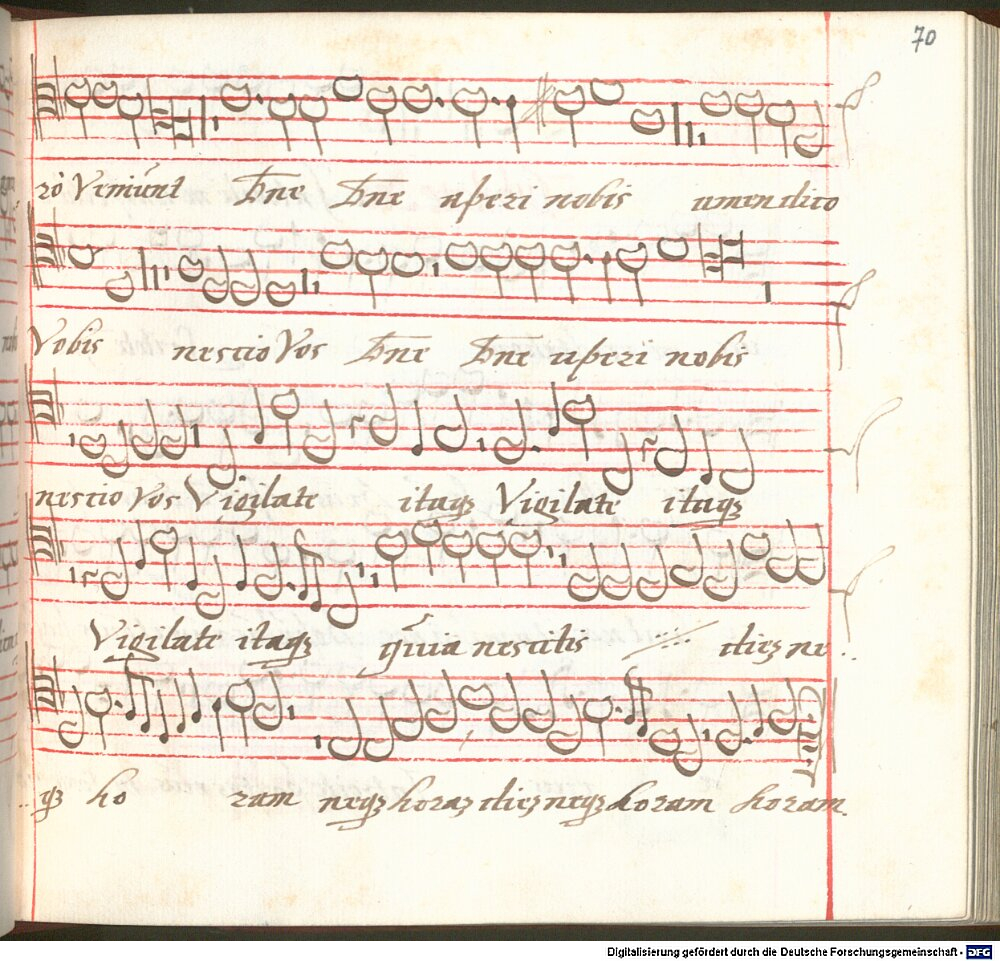 70
rò Veniūnt dn̄e dn̄e aperi nobis amen dico
Vobis nescio Vos dn̄e dn̄e aperi nobis
nescio Vos Vigilate itaqꝫ Vigilate itaqꝫ
Vigilate itaqꝫ quia nescitis diem ne
qꝫ ho ram neqꝫ horam diem neqꝫ horam horam.
Digitalisierung gefördert durch die Deutsche Forschungsgemeinschaft - DFG